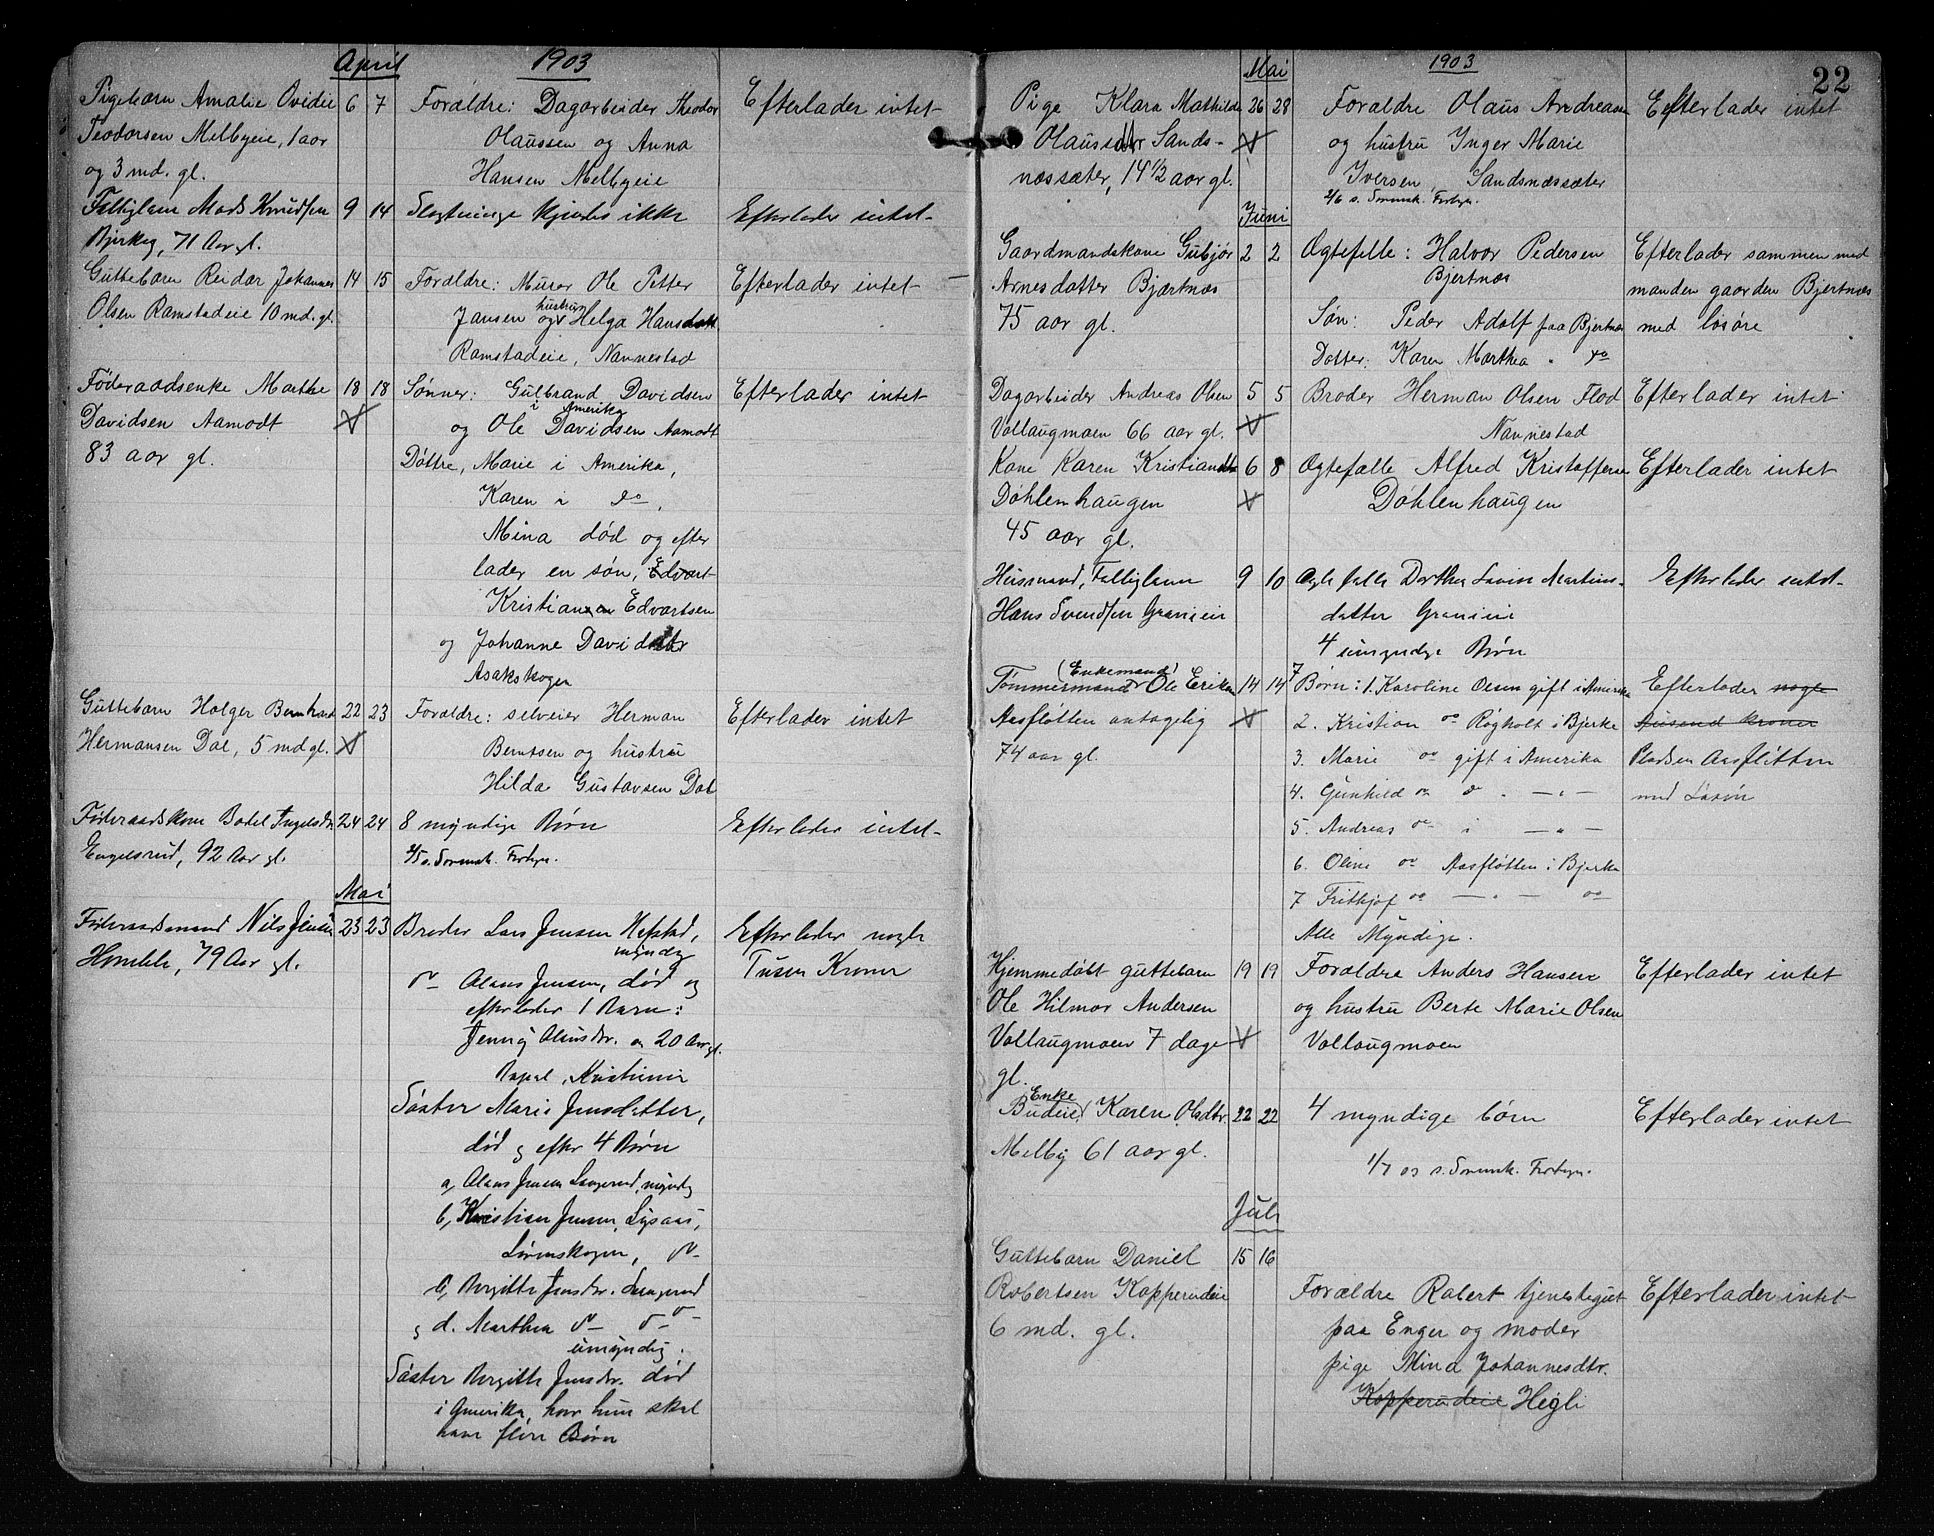 April 1903
Pigebarn Amalie Ovidie 6 7 Forældre: Dagarbeider Theodor Efterlader intet
Teodorsen Melbyeie, 1 aar Olaussen og Anna
og 3 md. gl. Hansen Melbyeie
Fattiglem Mads Knudsen 9 14 Slægtninge kjendes ikke Efterlader intet
71 Aar gl.
Guttebarn Reidar Johannes 14 15 Forældre: Murer Ole Petter Efterlader intet
Olsen Ramstadeie 10 md. gl. Jansen og hustru Helga Hansdatt
Ramstadeie, Nannestad
Føderaadsenke Marthe 18 18 Sønner: Gulbrand Davidsen Efterlader intet
i Amerika
Davidsen Aamodt og Ole Davidsen Aamodt
83 aar gl. Døttre, Marie i Amerika,
Karen i do,
Mina død og efter
lader en søn, Edvart
Kristiansen Edvartsen
og Johanne Davidsdtr
Asakskogen
Guttebarn Holger Bernhard 22 23 Forældre: selveier Herman Efterlader intet
Hermansen Dal, 5 md gl. Berntsen og hustru
Hilda Gustavsen Dal
Føderaadskone Bodel Ingelsdtr. 24 24 8 myndige Børn Efterlader intet
Engelsrud, 92 Aar gl. 2/5 s. Formsk. Fortegn.
Mai
Føderaadsmand Nils Jensen 23 23 Broder Lars Jensen Hefstad, Efterlader nogle
myndig
79 Aar gl. Tusen Kroner
do Olaus Jensen, død og
efterlader 1 Barn:
Jenny Olausdr. ca 20 Aar gl.
Kristiania
Søster Maria Jensdatter,
død og efter 4 Børn
a, Olaus Jensen Langerud, myndig
b, Kristian Jensen, Lysaas,
Lørenskogen, do
c, Birgitte Jensdtr. Langerud
og d. Marthea do do
umyndig.
Søster Birgitte Jensdtr. død
i Amerika, hvor hun skal
have flere Børn
Mai 1903 22
Pige Klara Mathilde 26 28 Forældre Olaus Andreasen Efterlader intet
Olausdtr Sands- og hustru Inger Marie
næssæter, 14 1/2 aar gl. Iversen Sandsnæssæter
2/6 s. Formsk. Fortegn.
Juni
Gaardmandskone Gubjør 2 2 Ægtefelle: Halvor Pedersen Efterlader sammen med
Arnesdatter Bjærtnæs Bjertnæs manden gaarden Bjertnæs
75 aar gl. Søn: Peder Adolf paa Bjertnæs med løsøre
Datter: Karen Marthea " do
Dagarbeider Andreas Olsen 5 5 Broder Herman Olsen Flod Efterlader intet
Vollaugmoen 66 aar gl. Nannestad
Kone Karen Kristiansdtr 6 8 Ægtefælle Alfred Kristoffersen Efterlader intet
Døhlenhaugen Døhlenhaugen
45 aar gl.
Husmand, Fattiglem 9 10 Ægtefælle Dorthea Lovise Martins- Efterlader intet
Hans Svendsen Granseie datter Granseie
4 umyndige Børn
(Enkemand) 7
Tømmermand Ole Eriksen 14 14 Børn: 1. Karoline Olsen gift i Amerika Efterlader nogle
Aasfløtten antagelig 2. Kristian do Røgholt i Bjerke tusend kroner
74 aar gl. 3. Marie do gift i Amerika Pladsen Aasfløtten
4. Gunhild do do " — " — med Løsøre
5. Andreas do i — " —
6. Oline do Aasfløtten i Bjerke
7 Frithjof do — " — do
Alle Myndige.
Hjemmedøbt guttebarn 19 19 Forældre Anders Hansen Efterlader intet
Ole Hilmar Andersen og hustru Berte Marie Olsen
Vollaugmoen 7 dage Vollaugmoen
gl.
Enke
Budeie, Karen Olsdtr. 22 22 4 myndige børn Efterlader intet
Melby 61 aar gl. 1/7 03 s. Formsk. Fortegn.
Juli
Guttebarn Daniel 15 16
Robertsen Kopperudeie Forældre Robert tjenestegut Efterlader intet
6 md. gl. paa Enger og moder
pige Mina Johannesdtr.
Kopperudeie Hegli